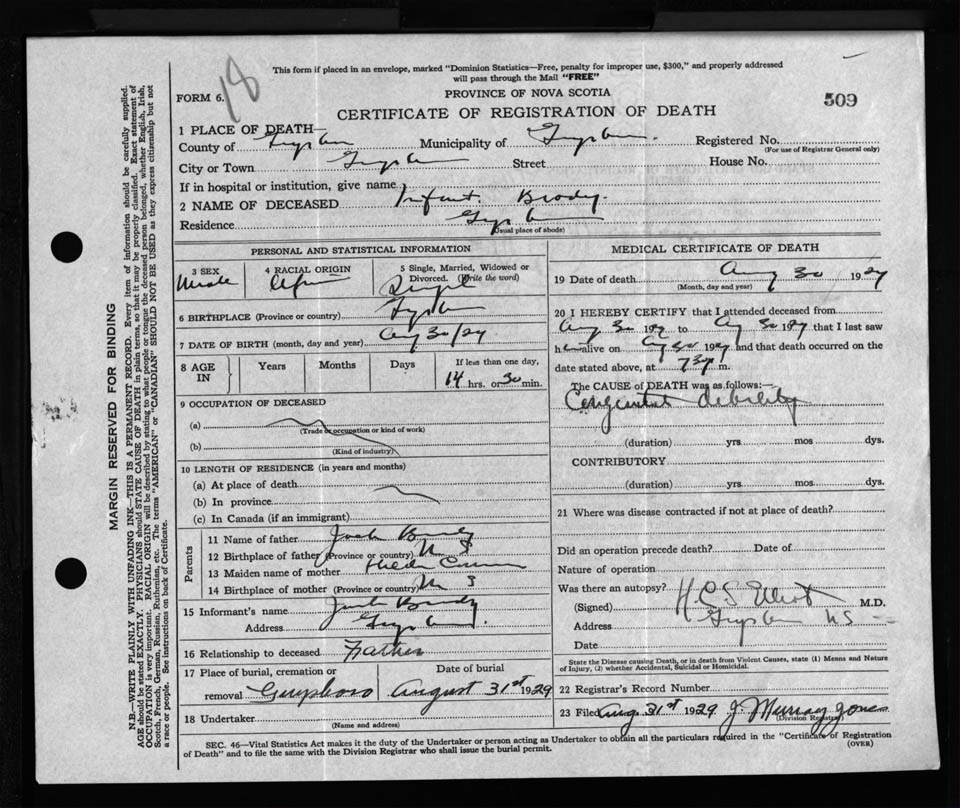 18
This form if placed in an envelope, marked "Dominion Statistics—Free, penalty for improper use, $300," and properly addressed
will pass through the Mail "FREE"
FORM 6.
PROVINCE OF NOVA SCOTIA
509
CERTIFICATE OF REGISTRATION OF DEATH
1 PLACE OF DEATH—
County of Municipality of Registered No.
(For use of Registrar General only)
City or Town Street House No.
If in hospital or institution, give name
2 NAME OF DECEASED Infant Brody.
Residence
(Usual place of abode)
PERSONAL AND STATISTICAL INFORMATION
3 SEX 4 RACIAL ORIGIN 5 Single, Married, Widowed or
Divorced. (Write the word)
Male Single
6 BIRTHPLACE (Province or country)
7 DATE OF BIRTH (month, day and year) Aug 30/29
8 AGE IN Years Months Days If less than one day,
14 hrs. or 30 min.
9 OCCUPATION OF DECEASED
(a)
(Trade or occupation or kind of work)
(b)
(Kind of industry)
10 LENGTH OF RESIDENCE (in years and months)
(a) At place of death
(b) In province
(c) In Canada (if an immigrant)
Parents
11 Name of father Brody
12 Birthplace of father (Province or country) N S
13 Maiden name of mother
14 Birthplace of mother (Province or country) N S
15 Informant's name Brody
Address
16 Relationship to deceased Father
17 Place of burial, cremation or Date of burial
removal Guysboro August 31st 1929
18 Undertaker
(Name and address)
MEDICAL CERTIFICATE OF DEATH
19 Date of death Aug 30 1929
(Month, day and year)
20 I HEREBY CERTIFY that I attended deceased from
Aug 30 1929 to Aug 30 1929 that I last saw
h alive on Aug 30 1929 and that death occurred on the
date stated above, at 7 30 m.
The CAUSE of DEATH was as follows:—
Congenital debility
(duration) yrs mos dys.
CONTRIBUTORY
(duration) yrs mos dys.
21 Where was disease contracted if not at place of death?
Did an operation precede death? Date of
Nature of operation
Was there an autopsy?
(Signed) M.D.
Address NS
Date
State the Disease causing Death, or in death from Violent Causes, state (1) Means and Nature
of Injury, (2) whether Accidental, Suicidal or Homicidal.
22 Registrar's Record Number
23 Filed Aug. 31st 1929 J. Murray Jones
(Division Registrar)
SEC. 46—Vital Statistics Act makes it the duty of the Undertaker or person acting as Undertaker to obtain all the particulars required in the "Certificate of Registration
of Death" and to file the same with the Division Registrar who shall issue the burial permit.
(OVER)
MARGIN RESERVED FOR BINDING
N.B.—WRITE PLAINLY WITH UNFADING INK—THIS IS A PERMANENT RECORD. Every item of information should be carefully supplied.
AGE should be stated EXACTLY. PHYSICIANS should STATE CAUSE OF DEATH in plain terms, so that it may be properly classified. Exact statement of
OCCUPATION is very important. RACIAL ORIGIN will be described by stating to what people or tongue the deceased person belonged, whether English, Irish,
Scotch, French, German, Russian, Ruthenian, etc. The terms "AMERICAN" or "CANADIAN" SHOULD NOT BE USED as they express citizenship but not
a race or people. See instructions on back of Certificate.